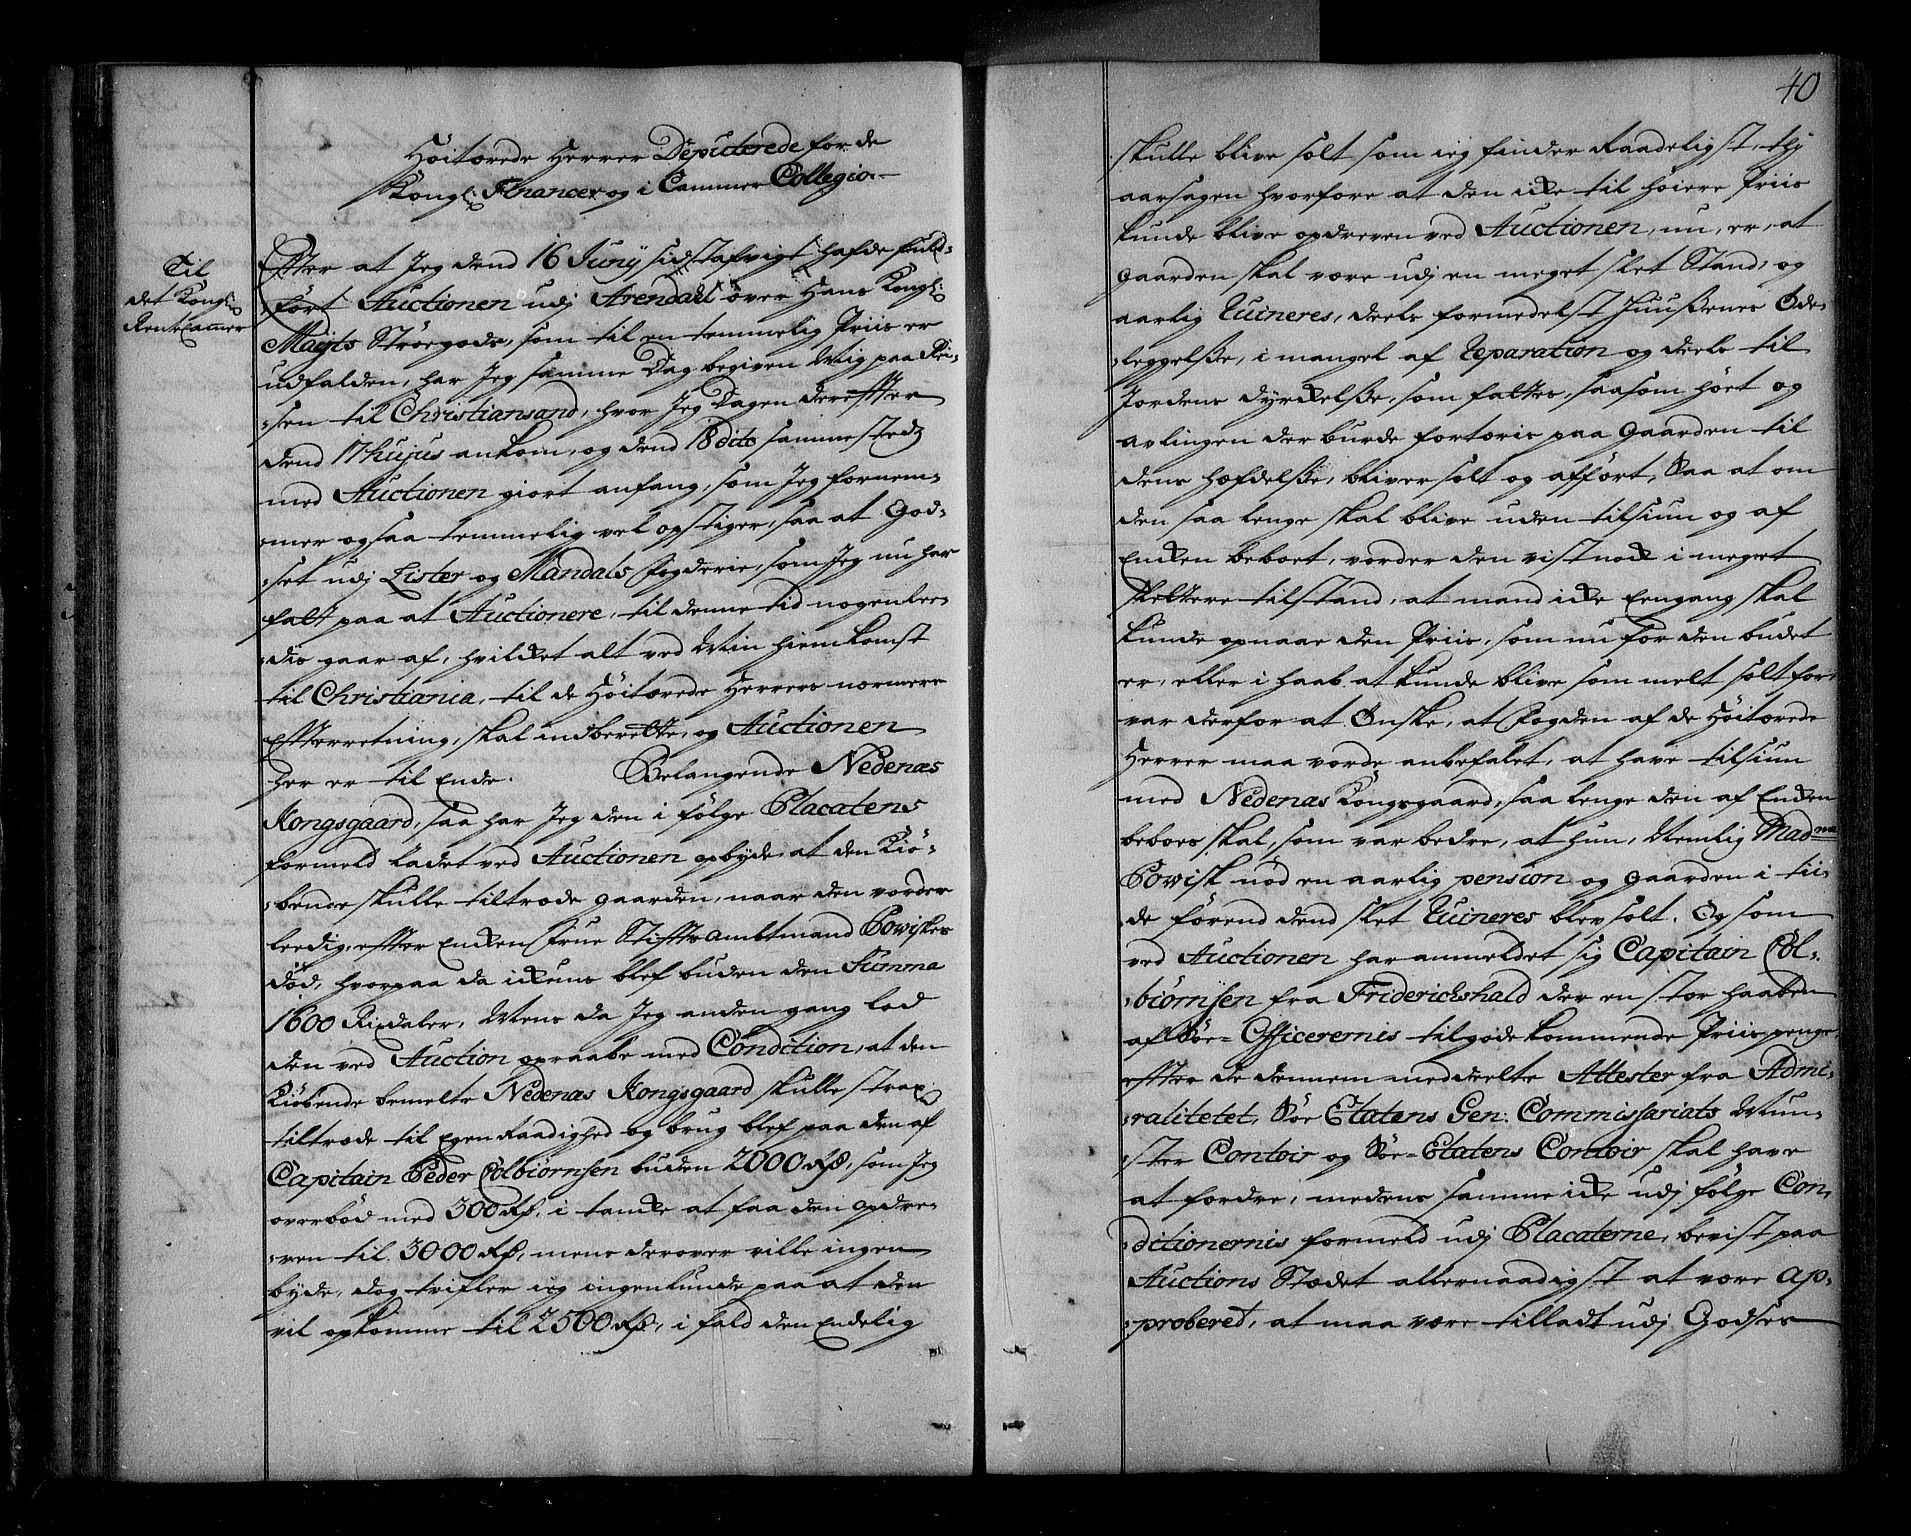 Höitærede Herrer Deputerede for de
Kongl: Financer og i Cammer Collegio.
Til
det Kongl:
Rente Camer
Efter at Jeg dend 16 Juny sidstafvigt hafde fuld-
ført Auctionen udj Arendal over Hans Kongl:
Mayts Strøegods, som til en temmelig Priis er
udfalden, har Jeg samme Dag begiven Mig paa Rei-
sen til Christiansand, hvor Jeg Dagen derefter
dend 17 hujus ankom, og dend 18 dito sammestedz
med Auctionen giort anfang, som Jeg fornem-
mer ogsaa temmelig vel opstiger, saa at God-
set udj Lister og Mandals Fogderie, som Jeg nu har
falt paa at Auctionere, til denne tid nogenlee-
dis gaar af, hvilket alt ved Min hiemkomst
til Christiania, til de Höitærede Herrers nærmere
Efterretning, skal indberette, og Auctionen
her er til Ende. Belangende Nedenæs
Kongsgaard, saa har Jeg den i følge Placatens
formeld ladet ved Auctionen opbyde, at den Kiö-
bende skulle tiltræde gaarden, naar den vorder
leedig, efter Enken Frue Stiftsambtmand Poviskes
Död, hvorpaa da ickuns blef buden den Summa
1600 Rixdaler, Mens da Jeg anden gang lod
den ved Auction opraabe med Condition, at den
Kiöbende bemelte Nedenæs Kongsgaard skulle strax
tiltræde til Egen Raadighed og brug blef paa den af
Capitain Peder Colbiörnsen buden 2000 Rd, som Jeg
overböd med 300 Rd, i tancke at faa den opdre-
ven til 3000 Rd, mens derover ville ingen
byde, dog tvifler ieg ingenlunde paa at den
vil opkomme til 2500 Rd, i fald den Endelig
40
skulle blive solt som ieg finder Raadeligst, thj
aarsagen hvorfore at den icke til höiere Priis
kunde blive opdreven ved Auctionen, nu, er, at
gaarden skal være udj en meget slet Stand, og
aarlig Ruineres, deels formedelst Huussenes Öde-
leggelsse, i mangel af Reparation og deels til
Jordens dyrckelsse, som fattes, saasom höet og
avlingen der burde fortæris paa gaarden til
dens hæfdelsse, bliver solt og afført, Saa at om
den saa lenge skal blive uden tilsiun og af
Encken beboet, vorder den vistnock i meget
slettere tilstand, at mand icke Eengang skal
kunde opnaae den Priis, som nu for den budet
er, eller i haab at kunde blive som melt solt for
var derfor at Önske, at Fogden af de Höitærede
Herrer maa vorde anbefalet, at have tilsiun
med Nedenæs Kongsgaard, saa lenge den af Encken
beboes skal, som var bedre, at hun, Nemlig Madme
Povisk nöd en aarlig pension og gaarden i tii-
de förend dend slet Ruineres blev solt. Og som
ved Auctionen har anmeldet sig Capitain Col-
biörnsen fra Friderichshald der en stor haaben
af Søe-Officerernis tilgodekommende Priispenge
efter de dennem meddeelte Attester fra Admi-
ralitetet, Søe Etatens Gen: Commissariats Mun-
ster Contoir og Søe-Etatens Contoir skal have
at fordre, medens samme icke udj følge Con-
ditionernis formeld udj Placaterne, bevist paa
Auctions Stædet allernaadigst at være ap-
proberet, at maa være tilladt udj Godses